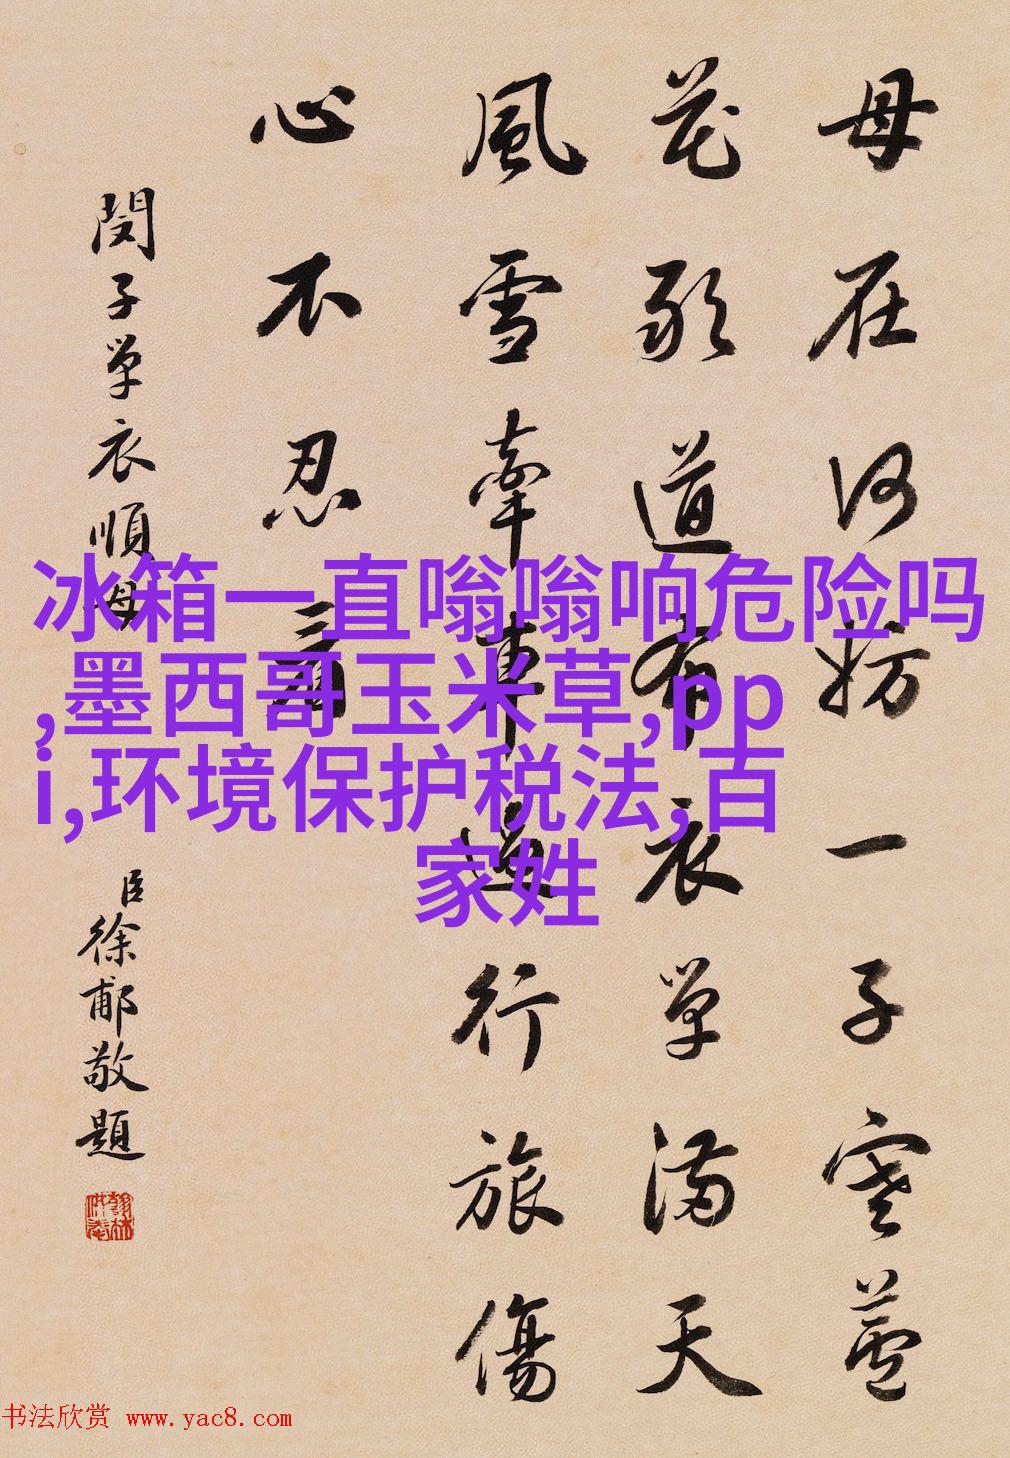 母在何妨一子寒蘆
花歌道有衣單滿天
風雪牽車行旅傷
心不忍看
閔子單衣順母
臣徐郙敬題
冰箱一直嗡嗡响危险吗
,墨西哥玉米草,pp
i,环境保护税法,百
家姓
书法欣赏 www.yac8.com